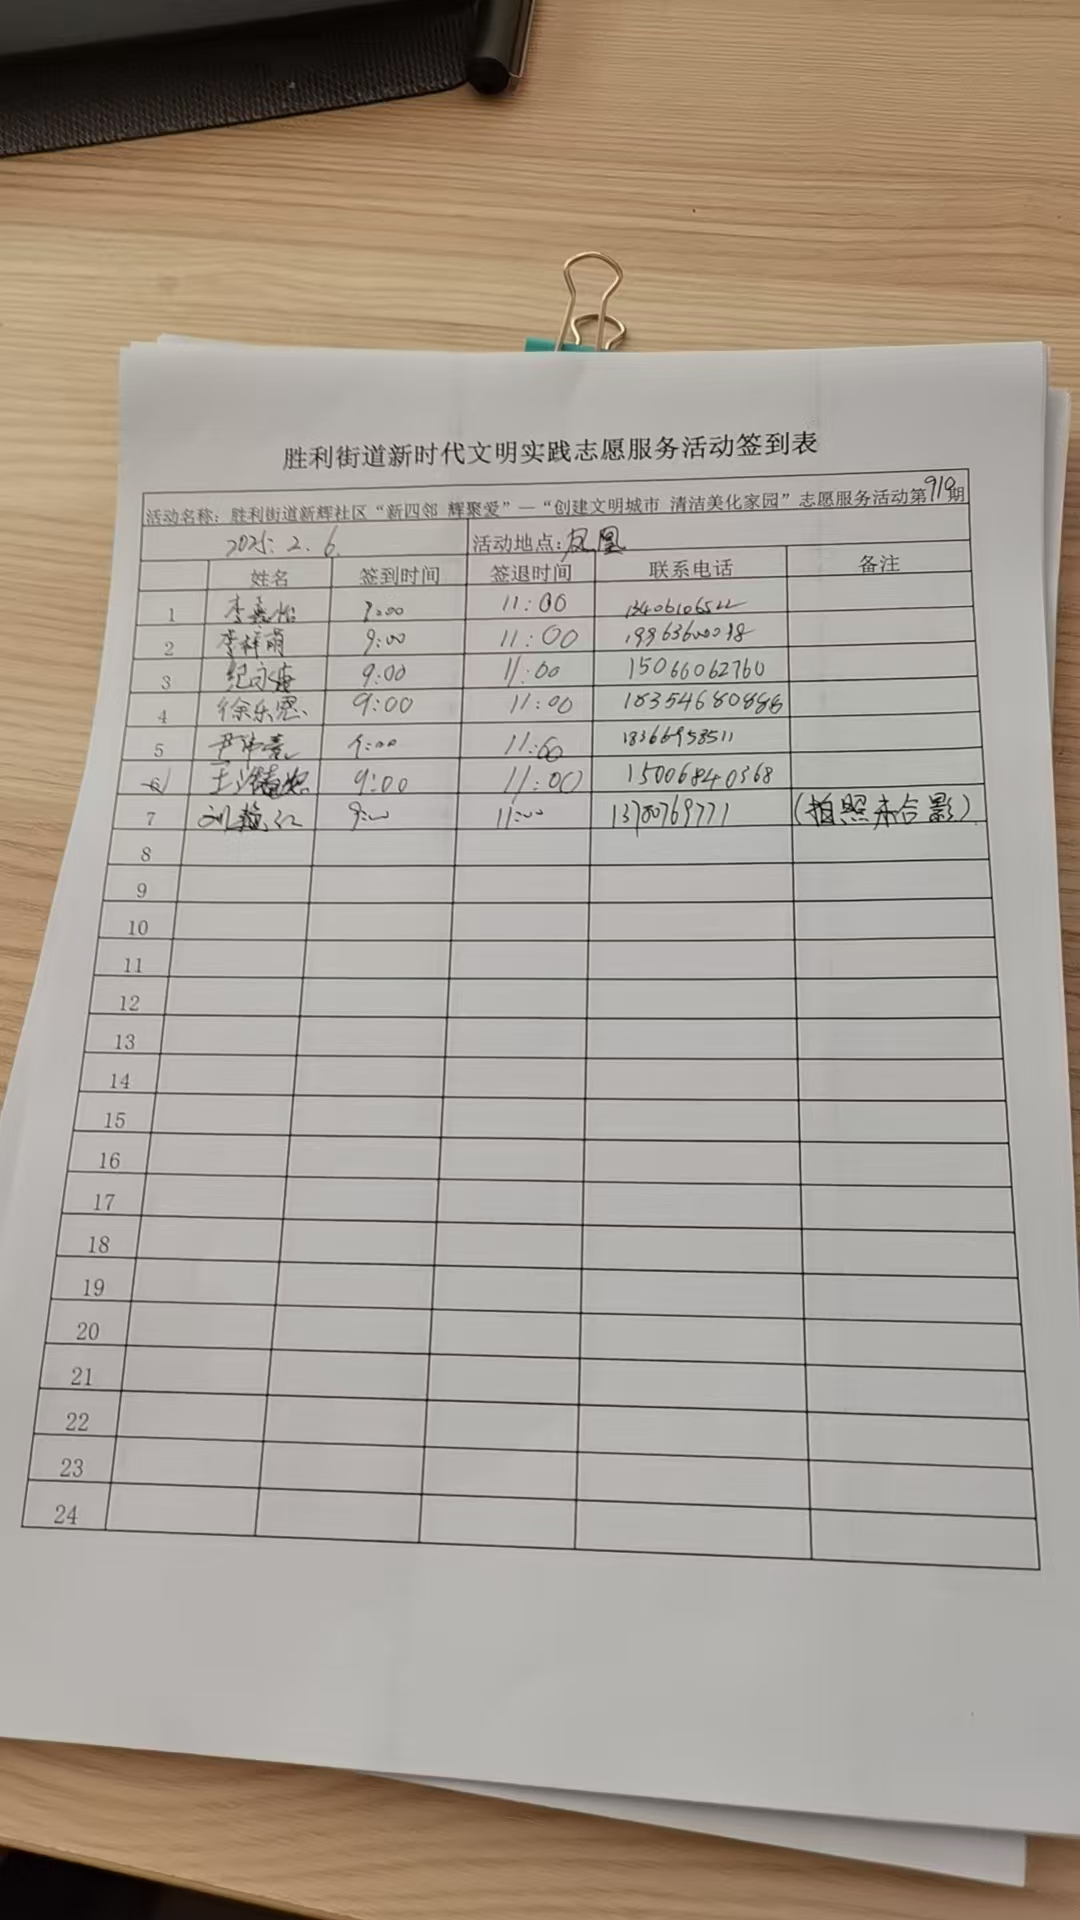 胜利街道新时代文明实践志愿服务活动签到表
活动名称：胜利街道新辉社区“新四邻 辉聚爱”—“创建文明城市 清洁美化家园”志愿服务活动第919期
2025.2.6. 活动地点：凤凰
姓名 签到时间 签退时间 联系电话 备注
1 李嘉怡 9:00 11:00
2 李梓萌 9:00 11:00
3 纪永梅 9:00 11:00 15066062760
4 徐乐恩 9:00 11:00 18354680886
5 9:00 11:00 18366958511
6 9:00 11:00 15006840368
7 刘艳红 9:00 11:00 13780769771 (拍照未合影)
8
9
10
11
12
13
14
15
16
17
18
19
20
21
22
23
24